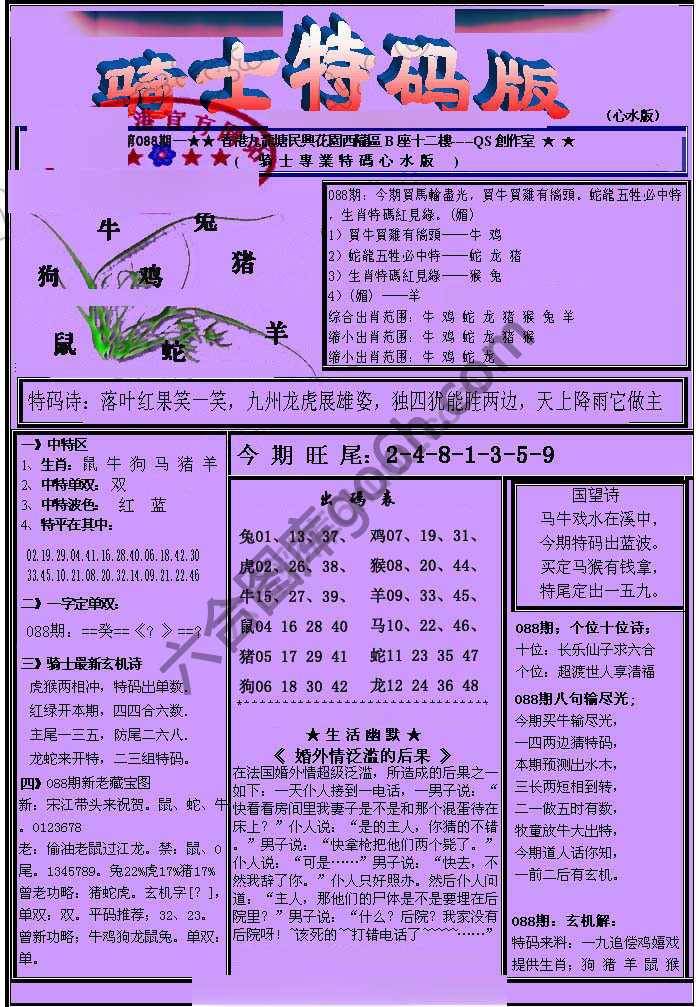 骑士特码版
(心水版)
088期—★★ 香港九龍塘民興花園西福區 B 座十二樓---QS 創作室 ★ ★
( 騎 士 專 業 特 碼 心 水 版 )
牛 兔
狗 鸡 猪
鼠 蛇 羊
088期: 今期買馬輸盡光, 買牛買雞有徜頭。蛇龍五牲必中特
, 生肖特碼紅見綠。(媚)
1) 買牛買雞有徜頭──牛 鸡
2) 蛇龍五牲必中特──蛇 龙 猪
3) 生肖特碼紅見綠──猴 兔
4) (媚) ──羊
综合出肖范围: 牛 鸡 蛇 龙 猪 猴 兔 羊
缩小出肖范围: 牛 鸡 蛇 龙 猪 猴
缩小出肖范围: 牛 鸡 蛇 龙
特码诗: 落叶红果笑一笑, 九州龙虎展雄姿, 独四犹能胜两边, 天上降雨它做主
一》中特区
1、生肖: 鼠 牛 狗 马 猪 羊
2、中特单双: 双
3、中特波色: 红 蓝
4、特平在其中:
02.19.29.04.41.16.28.40.06.18.42.30
33.45.10.21.08.20.32.14.09.21.22.46
二》一字定单双:
088期: ==癸==《? 》==?
三》骑士最新玄机诗
虎猴两相冲, 特码出单数.
红绿开本期, 四四合六数.
主尾一三五, 防尾二六八.
龙蛇来开特, 二三组特码。
四》088期新老藏宝图
新: 宋江带头来祝贺。鼠、蛇、牛
. 0123678
老: 偷油老鼠过江龙。禁: 鼠、0
尾。1345789. 兔22%虎17%猪17%
曾老功略: 猪蛇虎。玄机字[?],
单双: 双。平码推荐; 32、23。
曾新功略; 牛鸡狗龙鼠兔。单双:
单。
今 期 旺 尾: 2-4-8-1-3-5-9
出 码 表
兔01、13、37、 鸡07、19、31、
虎02、26、38、 猴08、20、44、
牛15、27、39、 羊09、33、45、
鼠04 16 28 40 马10、22、46、
猪05 17 29 41 蛇11 23 35 47
狗06 18 30 42 龙12 24 36 48
★ 生 活 幽 默 ★
《 婚外情泛滥的后果 》
在法国婚外情超级泛滥, 所造成的后果之一
如下: 一天仆人接到一电话, 一男子说: “
快看看房间里我妻子是不是和那个混蛋待在
床上?” 仆人说: “是的主人, 你猜的不错
。” 男子说: “快拿枪把他们两个毙了。”
仆人说: “可是……” 男子说: “快去, 不
然我辞了你。” 仆人只好照办。然后仆人问
道: “主人, 那他们的尸体是不是要埋在后
院里?” 男子说: “什么? 后院? 我家没有
后院呀! ^该死的^^打错电话了^^^^^……”
国望诗
马牛戏水在溪中,
今期特码出蓝波。
买定马猴有钱拿,
特尾定出一五九。
088期; 个位十位诗;
十位: 长乐仙子求六合
个位: 超渡世人享清福
088期八句输尽光;
今期买牛输尽光,
一四两边猜特码,
本期预测出水木,
三长两短相到转,
二一做五时有数,
牧童放牛大出特,
今期道人话你知,
一前二后有玄机。
088期: 玄机解:
特码来料: 一九追偿鸡嬉戏
提供生肖; 狗 猪 羊 鼠 猴
六合图库go6h.com